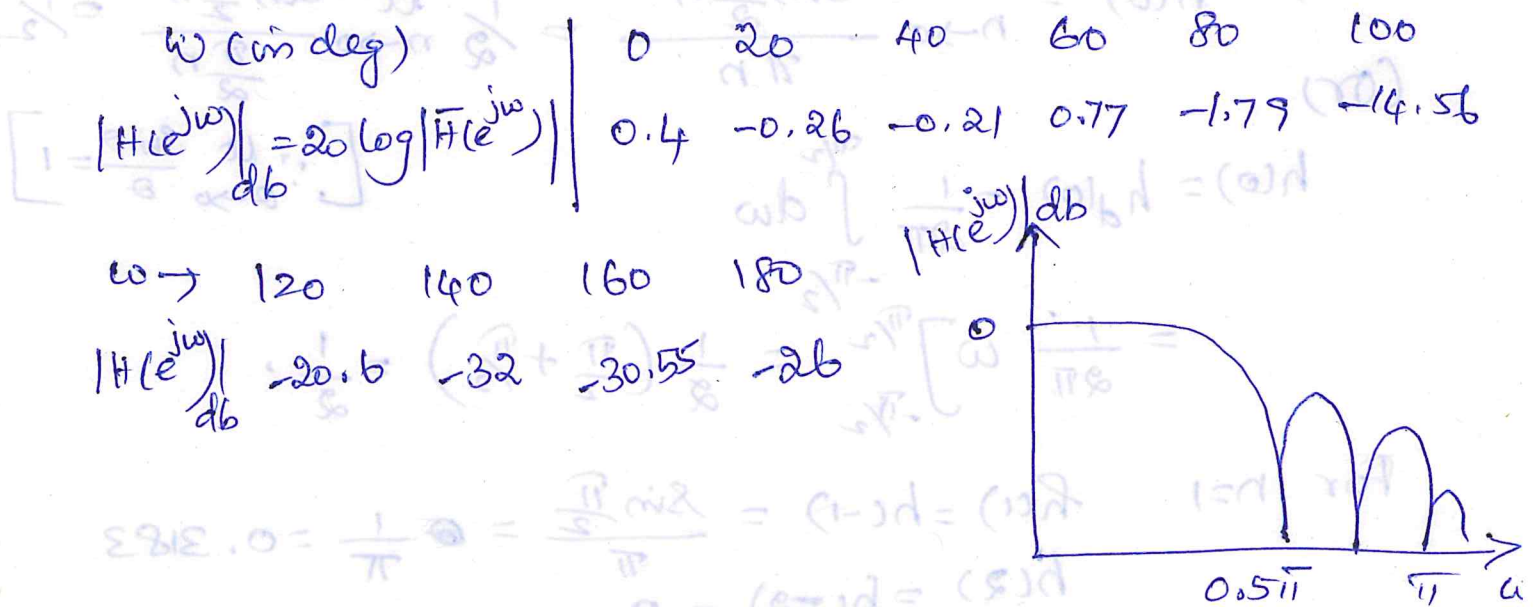 ω (in deg) | 0 20 40 60 80 100
|H(e^{jω})|_{db} = 20 log|H̄(e^{jω})| | 0.4 -0.26 -0.21 0.77 -1.79 -14.56
ω → 120 140 160 180
|H(e^{jω})|_{db} -20.6 -32 -30.55 -26
|H(e^{jω})|db
0
0.5π π ω